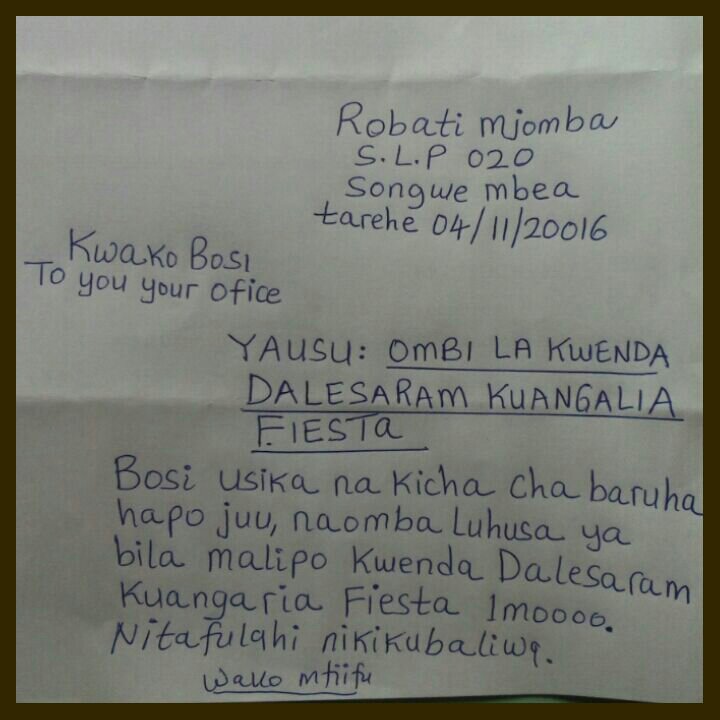 Robati mjomba
S.L.P 020
Songwe mbea
tarehe 04/11/20016
Kwako Bosi
To you your ofice
YAUSU: OMBI LA KWENDA
DALESARAM KUANGALIA
FIESTA
Bosi usika na kicha cha baruha
hapo juu, naomba Luhusa ya
bila malipo Kwenda Dalesaram
Kuangaria Fiesta 1moooo.
Nitafulahi nikikubaliwq.
wako mtiifu